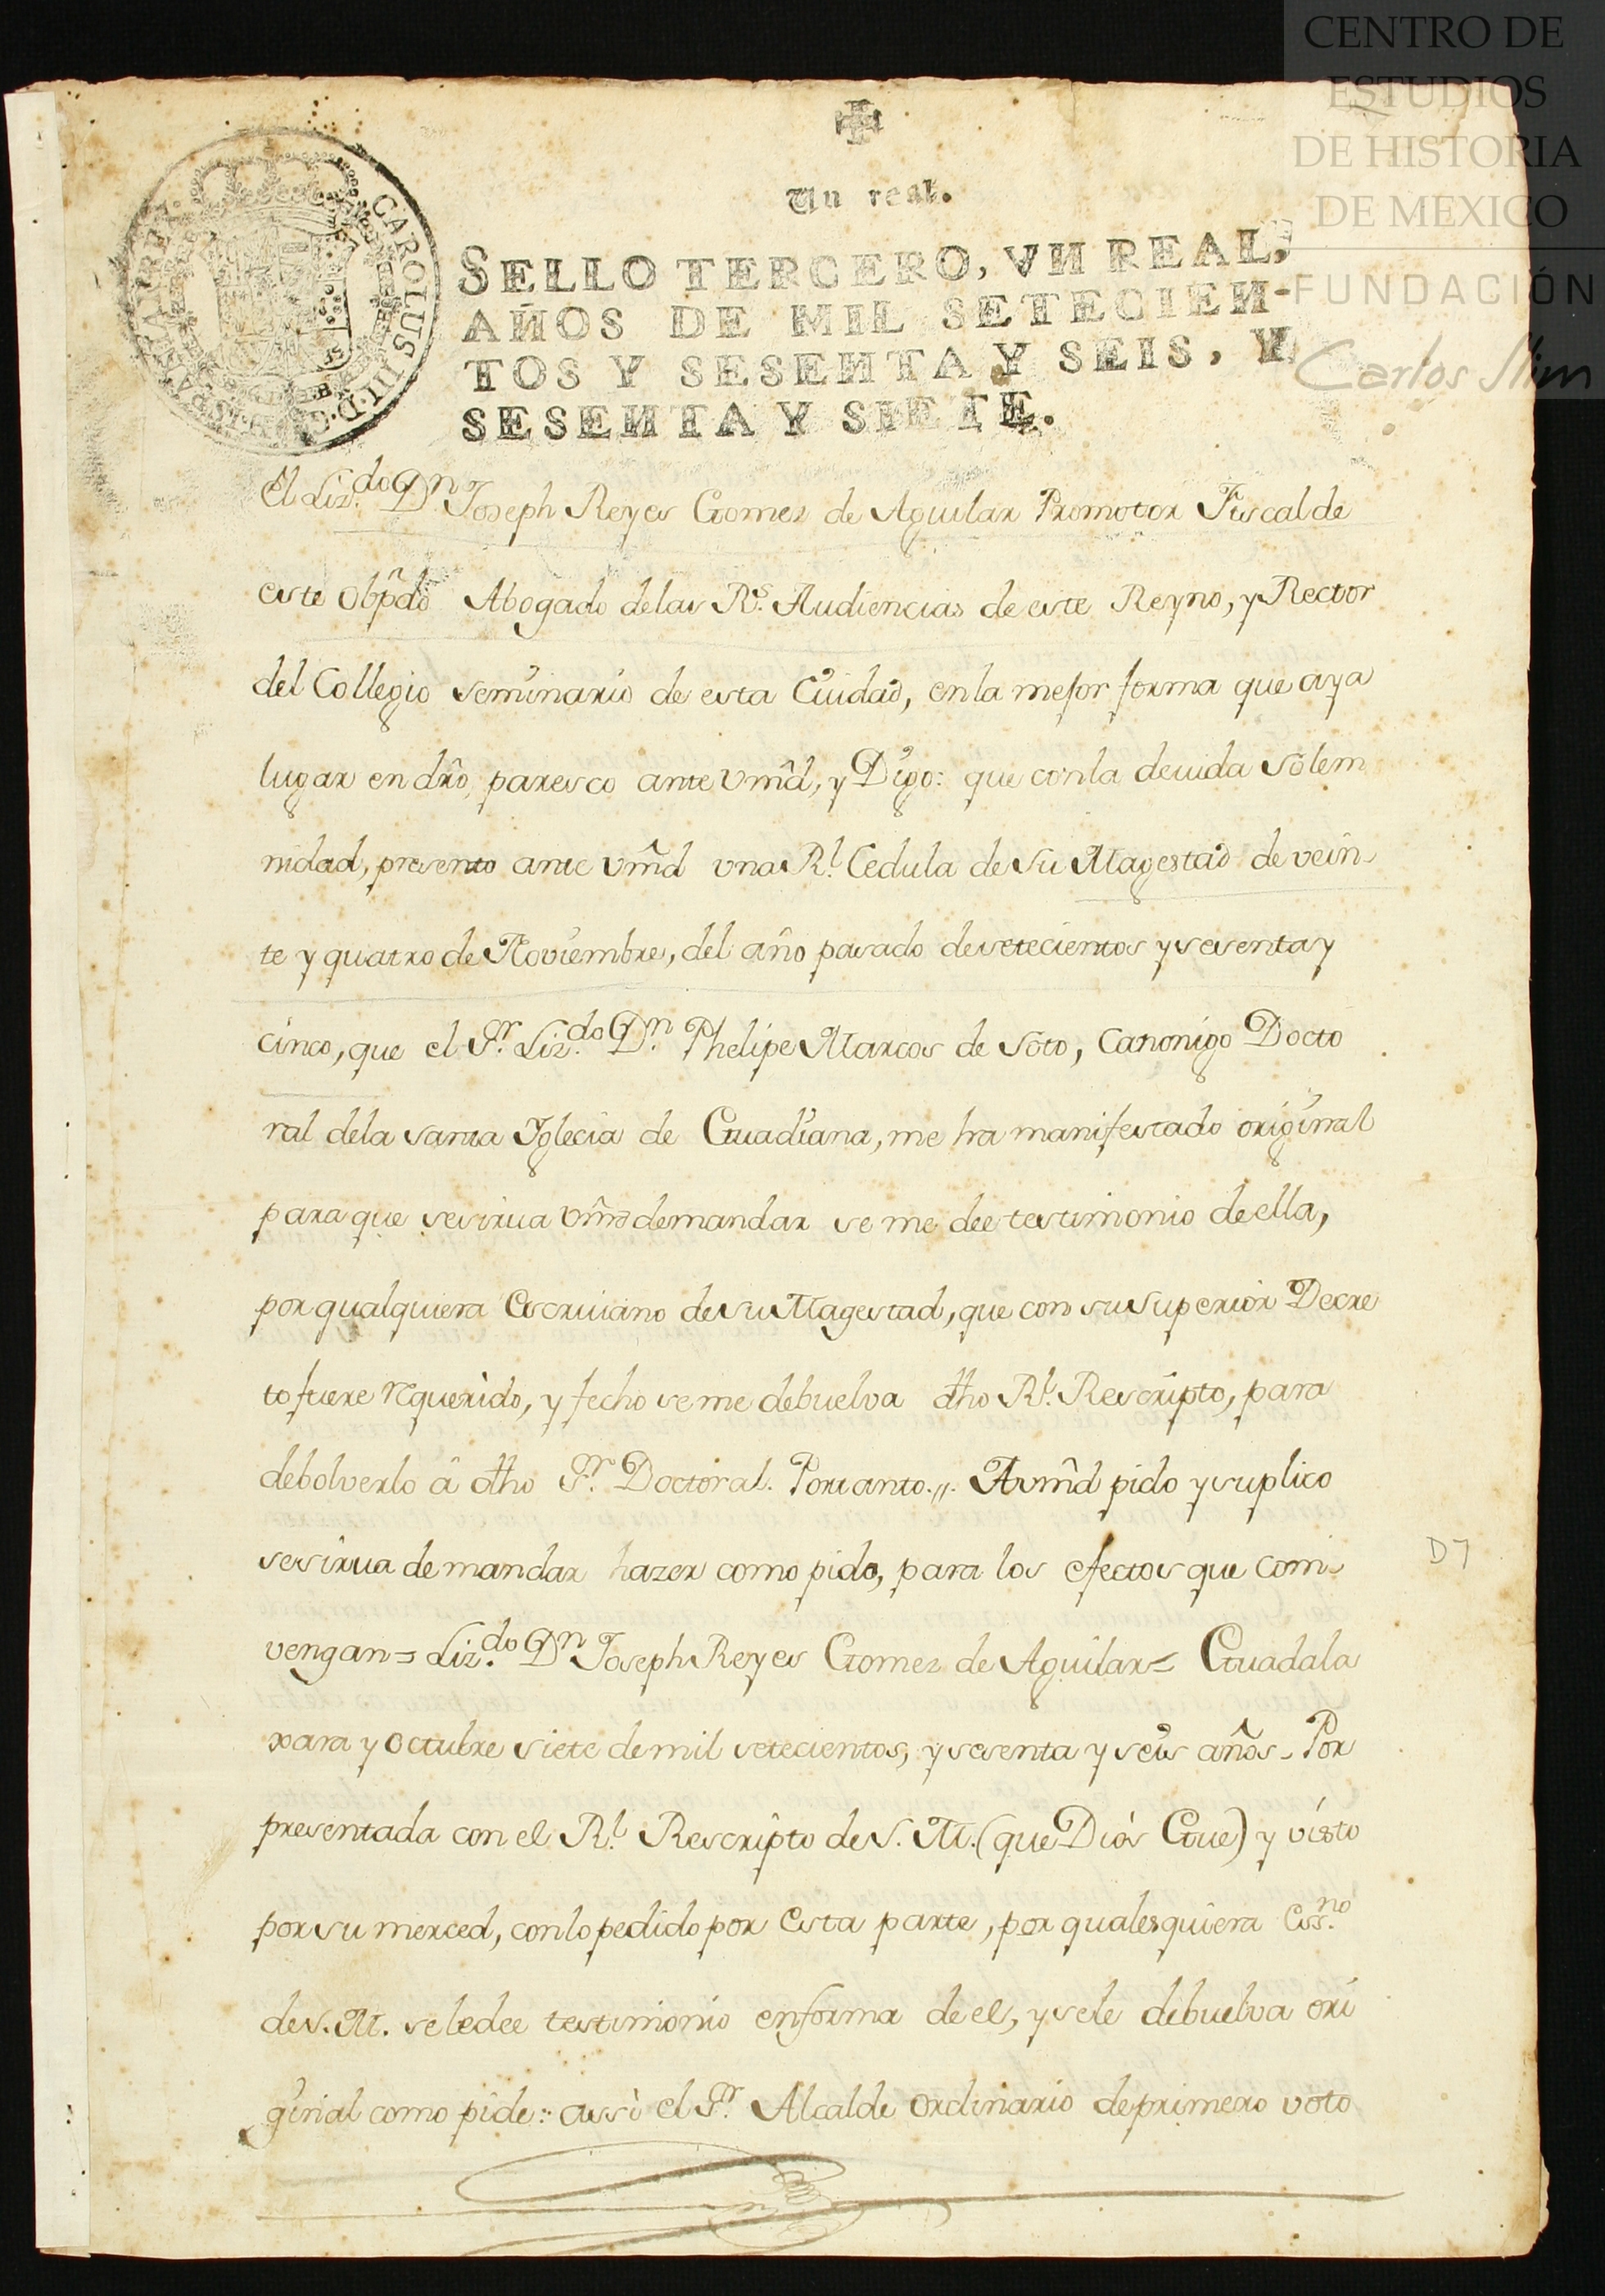 CENTRO DE
ESTUDIOS
DE HISTORIA
DE MEXICO
FUNDACIÓN
Carlos Slim
Un real.
CAROLUS III D. G. HISPANIAR REX
SELLO TERCERO, VN REAL,
AÑOS DE MIL SETECIEN-
TOS Y SESENTA Y SEIS, Y
SESENTA Y SIETE.
El Liz.do Dn Joseph Reyes Gomez de Aguilar Promotor Fiscal de
este Obpdo Abogado delas Rs. Audiencias de este Reyno, y Rector
del Collegio seminario de esta Ciudad, en la mejor forma que aya
lugar en dro, paresco ante Vmd, y Digo: que con la deuida solem
nidad, presento ante Vmd vna Rl. Cedula de Su Magestad de vein-
te y quatro de Noviembre, del año pasado de setecientos y sesenta y
cinco, que el Sr. Liz.do Dn. Phelipe Marcos de Soto, Canonigo Docto
ral dela santa Iglecia de Guadiana, me ha manifestado original
para que se sirua Vmd demandar se me dee testimonio de ella,
por qualquiera Escriuano de su Magestad, que con su Superior Decre
to fuere requerido, y fecho se me debuelva dho Rl. Rescripto, para
debolverlo â dho Sr. Doctoral. Portanto.,,. A vmd pido y suplico
se sirua demandar hazer como pido, para los efectos que com-
vengan = Liz.do Dn Joseph Reyes Gomez de Aguilar = Guadala
xara y Octubre siete de mil setecientos, y sesenta y seis años - Por
presentada con el Rl. Rescripto de S. M. (que Diós Gue) y visto
por su merced, con lo pedido por esta parte, por qualesquiera Ess.no
de S. M. se le dee testimonio en forma de el, y se le debuelva ori
ginal como pide: assì el Sr. Alcalde ordinario de primero voto
D7